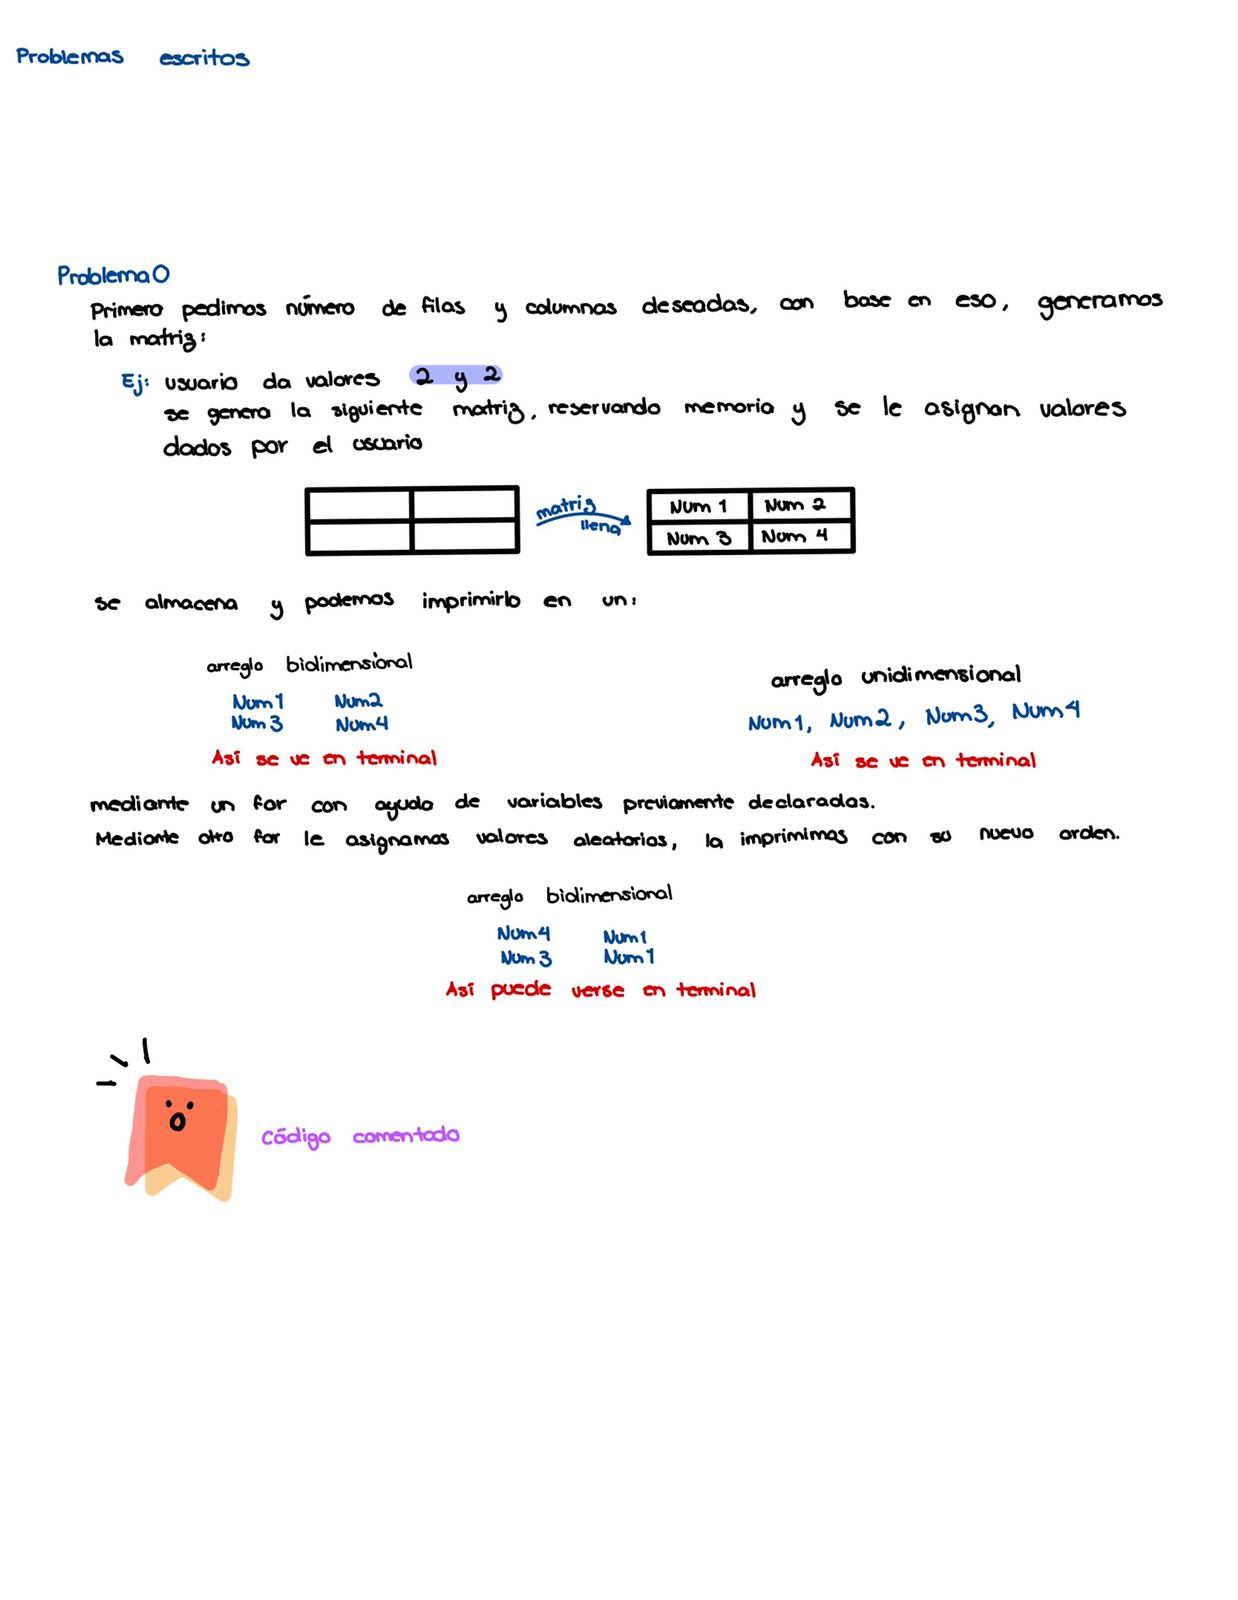 Problemas escritos
Problema 0
Primero pedimos número de filas y columnas deseadas, con base en eso, generamos
la matriz:
Ej: usuario da valores 2 y 2
se genera la siguiente matriz, reservando memoria y se le asignan valores
dados por el usuario
matriz
llena
Num 1 Num 2
Num 3 Num 4
se almacena y podemos imprimirlo en un:
arreglo bidimensional
Num1 Num2
Num3 Num4
Así se ve en terminal
arreglo unidimensional
Num1, Num2, Num3, Num4
Así se ve en terminal
mediante un for con ayuda de variables previamente declaradas.
Mediante otro for le asignamos valores aleatorios, la imprimimos con su nuevo orden.
arreglo bidimensional
Num4 Num1
Num3 Num1
Así puede verse en terminal
Código comentado